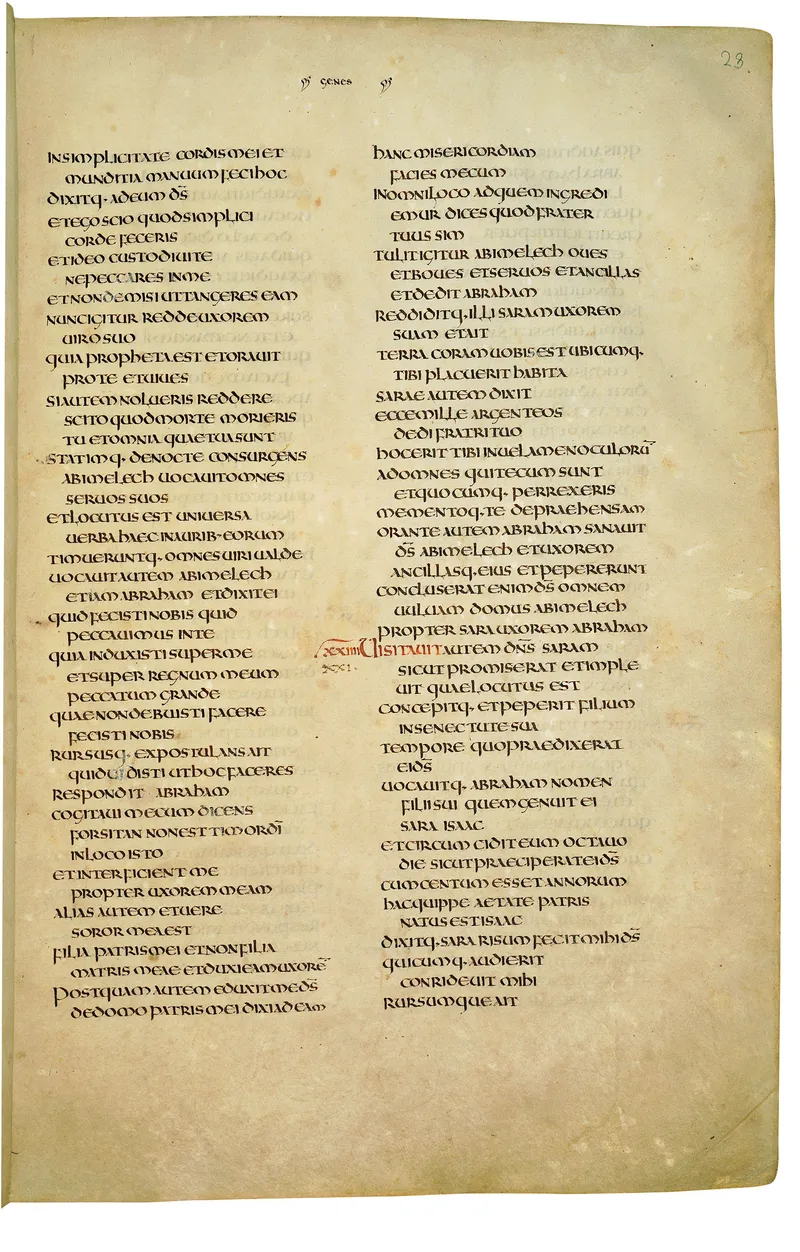 GENES
28
IN SIMPLICITATE CORDIS MEI ET
MUNDITIA MANUUM FECI HOC
DIXITQ· AD EUM D̅S̅
ET EGO SCIO QUOD SIMPLICI
CORDE FECERIS
ET IDEO CUSTODIUI TE
NE PECCARES IN ME
ET NON DEMISI UT TANGERES EAM
NUNC IGITUR REDDE UXOREM
UIRO SUO
QUIA PROPHETA EST ET ORAUIT
PRO TE ET UIUES
SI AUTEM NOLUERIS REDDERE
SCITO QUOD MORTE MORIERIS
TU ET OMNIA QUAE TUA SUNT
STATIMQ· DE NOCTE CONSURGENS
ABIMELECH UOCAUIT OMNES
SERUOS SUOS
ET LOCUTUS EST UNIUERSA
UERBA HAEC IN AURIB· EORUM
TIMUERUNTQ· OMNES UIRI UALDE
UOCAUIT AUTEM ABIMELECH
ETIAM ABRAHAM ET DIXIT EI
QUID FECISTI NOBIS QUID
PECCAUIMUS IN TE
QUIA INDUXISTI SUPER ME
ET SUPER REGNUM MEUM
PECCATUM GRANDE
QUAE NON DEBUISTI FACERE
FECISTI NOBIS
RURSUSQ· EXPOSTULANS AIT
QUID UIDISTI UT HOC FACERES
RESPONDIT ABRAHAM
COGITAUI MECUM DICENS
FORSITAN NON EST TIMOR DI̅
IN LOCO ISTO
ET INTERFICIENT ME
PROPTER UXOREM MEAM
ALIAS AUTEM ET UERE
SOROR MEA EST
FILIA PATRIS MEI ET NON FILIA
MATRIS MEAE ET DUXI EAM UXORE̅
POSTQUAM AUTEM EDUXIT ME D̅S̅
DE DOMO PATRIS MEI DIXI AD EAM
HANC MISERICORDIAM
FACIES MECUM
IN OMNI LOCO AD QUEM INGREDI
EMUR DICES QUOD FRATER
TUUS SIM
TULIT IGITUR ABIMELECH OUES
ET BOUES ET SERUOS ET ANCILLAS
ET DEDIT ABRAHAM
REDDIDITQ· ILLI SARAM UXOREM
SUAM ET AIT
TERRA CORAM UOBIS EST UBICUMQ·
TIBI PLACUERIT HABITA
SARAE AUTEM DIXIT
ECCE MILLE ARGENTEOS
DEDI FRATRI TUO
HOC ERIT TIBI IN UELAMEN OCULORU̅
AD OMNES QUI TECUM SUNT
ET QUOCUMQ· PERREXERIS
MEMENTOQ· TE DEPRAEHENSAM
ORANTE AUTEM ABRAHAM SANAUIT
D̅S̅ ABIMELECH ET UXOREM
ANCILLASQ· EIUS ET PEPERERUNT
CONCLUSERAT ENIM D̅S̅ OMNEM
UULUAM DOMUS ABIMELECH
PROPTER SARA UXOREM ABRAHAM
XXIIII UISITAUIT AUTEM D̅N̅S̅ SARAM
XXI· SICUT PROMISERAT ET IMPLE
UIT QUAE LOCUTUS EST
CONCEPITQ· ET PEPERIT FILIUM
IN SENECTUTE SUA
TEMPORE QUO PRAEDIXERAT
EI D̅S̅
UOCAUITQ· ABRAHAM NOMEN
FILII SUI QUEM GENUIT EI
SARA ISAAC
ET CIRCUMCIDIT EUM OCTAUO
DIE SICUT PRAECIPERAT EI D̅S̅
CUM CENTUM ESSET ANNORUM
HAC QUIPPE AETATE PATRIS
NATUS EST ISAAC
DIXITQ· SARA RISUM FECIT MIHI D̅S̅
QUICUMQ· AUDIERIT
CONRIDEUIT MIHI
RURSUMQUE AIT